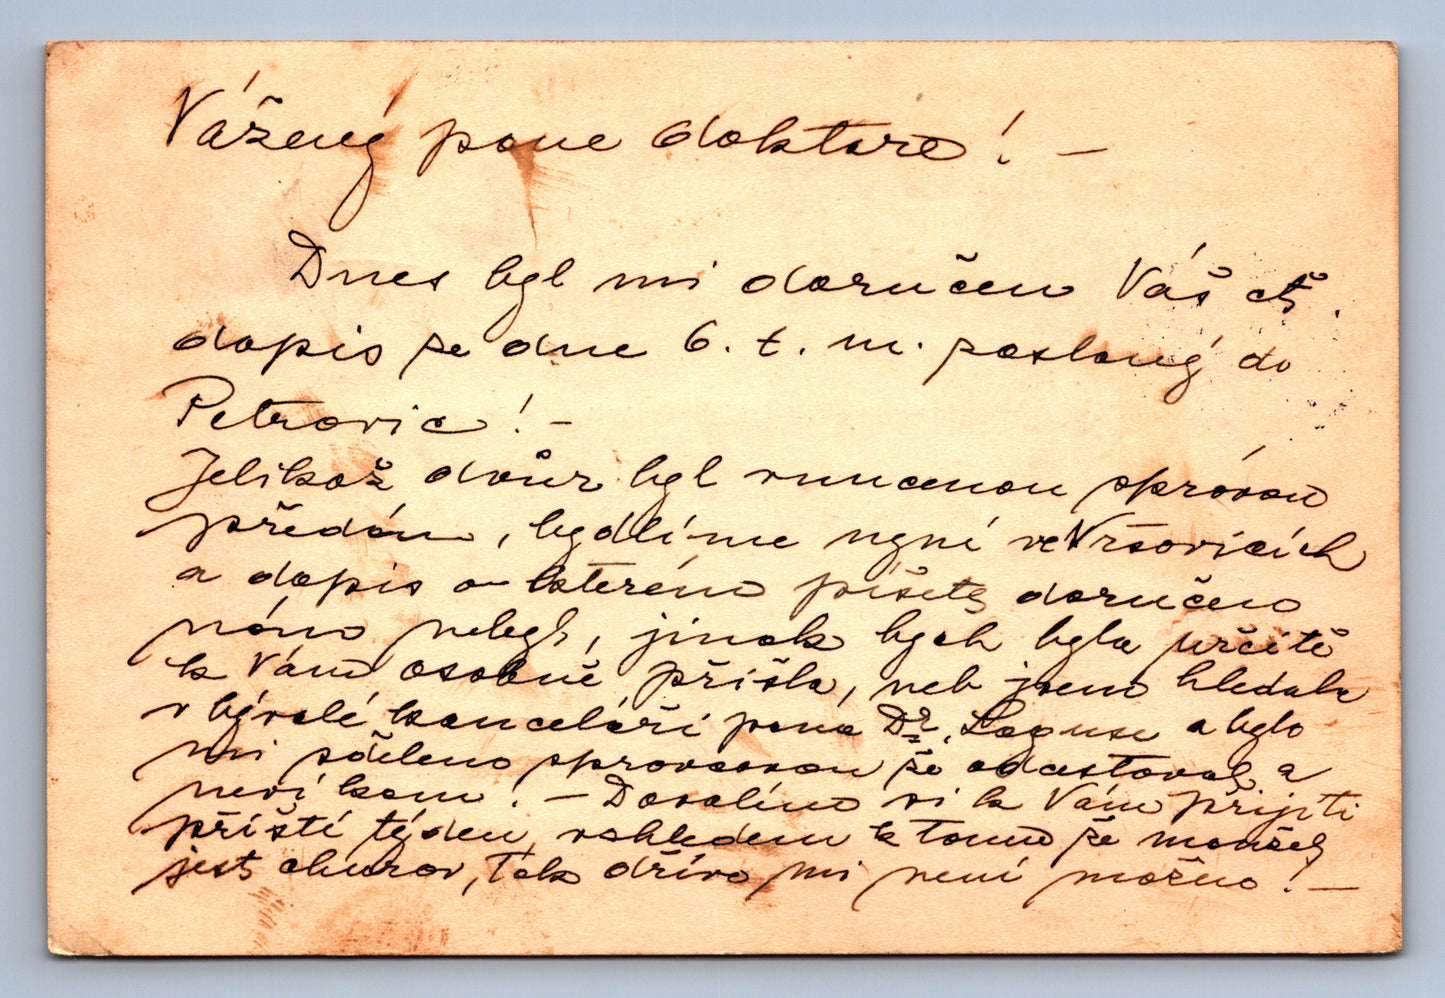 Vážený pane doktore! –
Dnes byl mi doručen Váš ct.
dopis ze dne 6. t. m. zaslaný do
Petrovic! –
Jelikož dvůr byl vnucenou správou
předán, bydlíme nyní ve Vršovicích
a dopis o kterém píšete doručen
nám nebyl, jinak bych byla určitě
k Vám osobně přišla, neb jsem hledala
v bývalé kanceláři pana Dr. a bylo
mi sděleno správcovou že odcestoval a
neví kam! – Dovolím si k Vám přijíti
příští týden, vzhledem k tomu že manžel
jest churav, tak dříve mi není možno! –